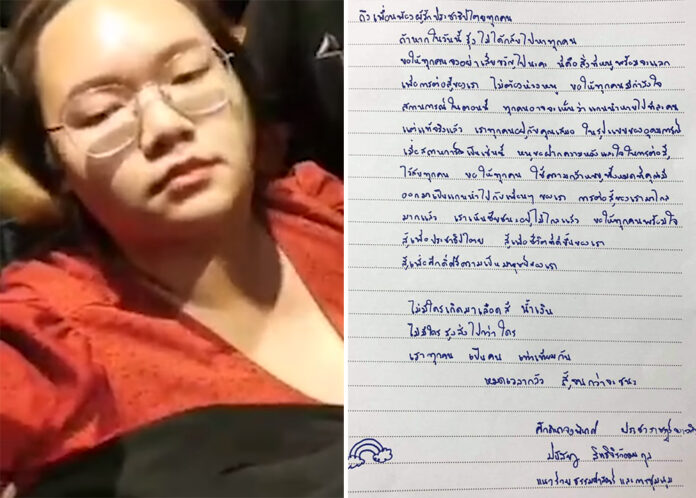 ถึง เพื่อนพ้องผู้รักประชาธิปไตยทุกคน
ถ้าหากในวันนี้ รุ้ง ไม่ได้กลับไปหาทุกคน
ขอให้ทุกคนอย่าเสียขวัญไปนะคะ นี่คือสิ่งที่หนูพร้อมจะแลก
เพื่อการต่อสู้ของเรา ไม่ต้องห่วงหนู ขอให้ทุกคนมีกำลังใจ
สถานการณ์ในตอนนี้ ทุกคนอาจจะเห็นว่าแกนนำหายไปทีละคน
แต่แท้จริงแล้ว เราทุกคนอยู่กับคุณเสมอ ในรูปแบบของอุดมการณ์
เมื่อสถานการณ์เป็นเช่นนี้ หนูขอฝากความหวังและใจในการต่อสู้
ไว้กับทุกคน ขอให้ทุกคน ใช้ความกล้าหาญทั้งหมดที่คุณมี
ออกมาเป็นแกนนำไปกับเพื่อนๆ ของเรา การต่อสู้ของเรามาไกล
มากแล้ว เราเห็นชัยชนะอยู่ไม่ไกลแล้ว ขอให้ทุกคนพร้อมใจ
สู้เพื่อประชาธิปไตย สู้เพื่อชีวิตที่ดีขึ้นของเรา
สู้เพื่อศักดิ์ศรีความเป็นมนุษย์ของเรา
ไม่มีใครเกิดมาเลือดสี น้ำเงิน
ไม่มีใคร สูงส่งไปกว่า ใคร
เราทุกคน เป็นคน เท่าเทียมกัน
หมดเวลากลัว สู้จนกว่าจะชนะ
ศักดินาจงพินาศ ประชาราษฎร์
ปนัสยา สิทธิจิรวัฒนกุล
แนวร่วมธรรมศาสตร์ และการชุมนุม